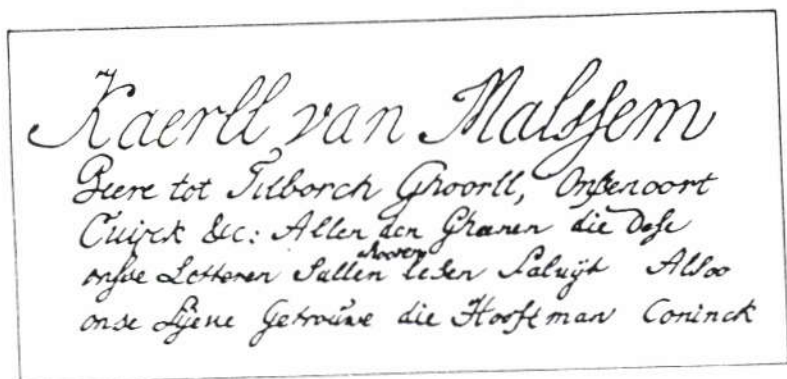 Kaerll van Malssem
Heere tot Tilborch Ghoorll, Onsenoort
Cuijck &c: Allen den Ghenen die dese
onse Letteren Sullen hooren lesen Saluijt Alsoo
onse Lijeve Getrouwe die Hooftman Coninck